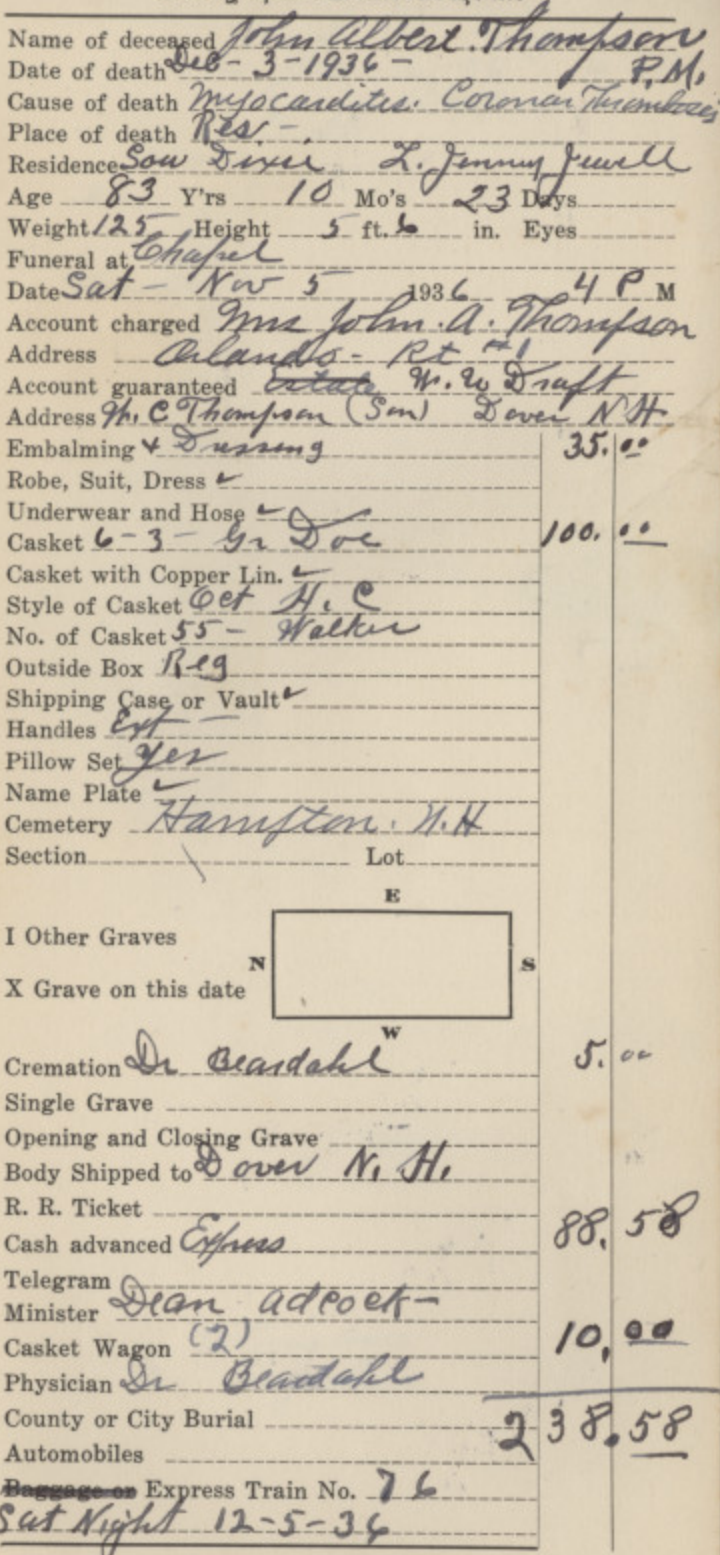 Name of deceased John Albert Thompson
Date of death Deb - 3 - 1936 - P.M.
Cause of death Myocardites. Coronar Thrombosis
Place of death Res - .
Residence Sou Dixie L. Jenney Jewell
Age 83 Y'rs 10 Mo's 23 Days
Weight 125 Height 5 ft. 6 in. Eyes
Funeral at Chapel
Date Sat - Nov 5 1936 4 P M
Account charged Mrs John. A. Thompson
Address Orlando - Rt #1
Account guaranteed Estate W. W Draft
Address W. C Thompson (Son) Dover N H
Embalming + Dressing 35.00
Robe, Suit, Dress ✓
Underwear and Hose ✓
Casket 6 - 3 - Gr Doe 100.00
Casket with Copper Lin. ✓
Style of Casket Oct H. C
No. of Casket 55 - Walker
Outside Box Reg
Shipping Case or Vault ✓
Handles Ext -
Pillow Set Yes
Name Plate ✓
Cemetery Hampton. N.H
Section Lot
E
I Other Graves
N S
X Grave on this date
W
Cremation Dr Beardahl 5.00
Single Grave
Opening and Closing Grave
Body Shipped to Dover N. H.
R. R. Ticket
Cash advanced Express 88.58
Telegram
Minister Dean Adcock -
Casket Wagon (2) 10.00
Physician Dr Beardahl
County or City Burial 238.58
Automobiles
Baggage or Express Train No. 76
Sat Night 12-5-36